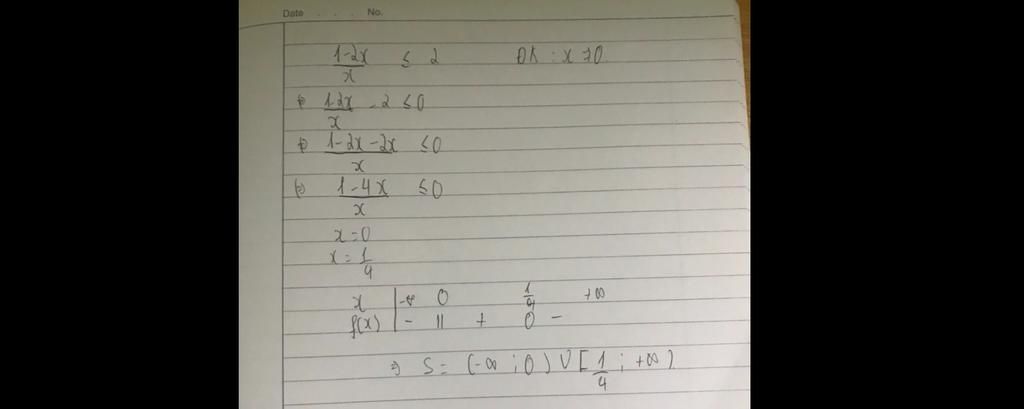 Date . . . No.
1-2x/x ≤ 2 ĐK : x ≠ 0
⇔ 1-2x/x - 2 ≤ 0
⇔ 1-2x-2x/x ≤ 0
⇔ 1-4x/x ≤ 0
x = 0
x = 1/4
x | -∞ 0 1/4 +∞
f(x) | - || + 0 -
⇒ S = (-∞ ; 0) ∪ [1/4 ; +∞)